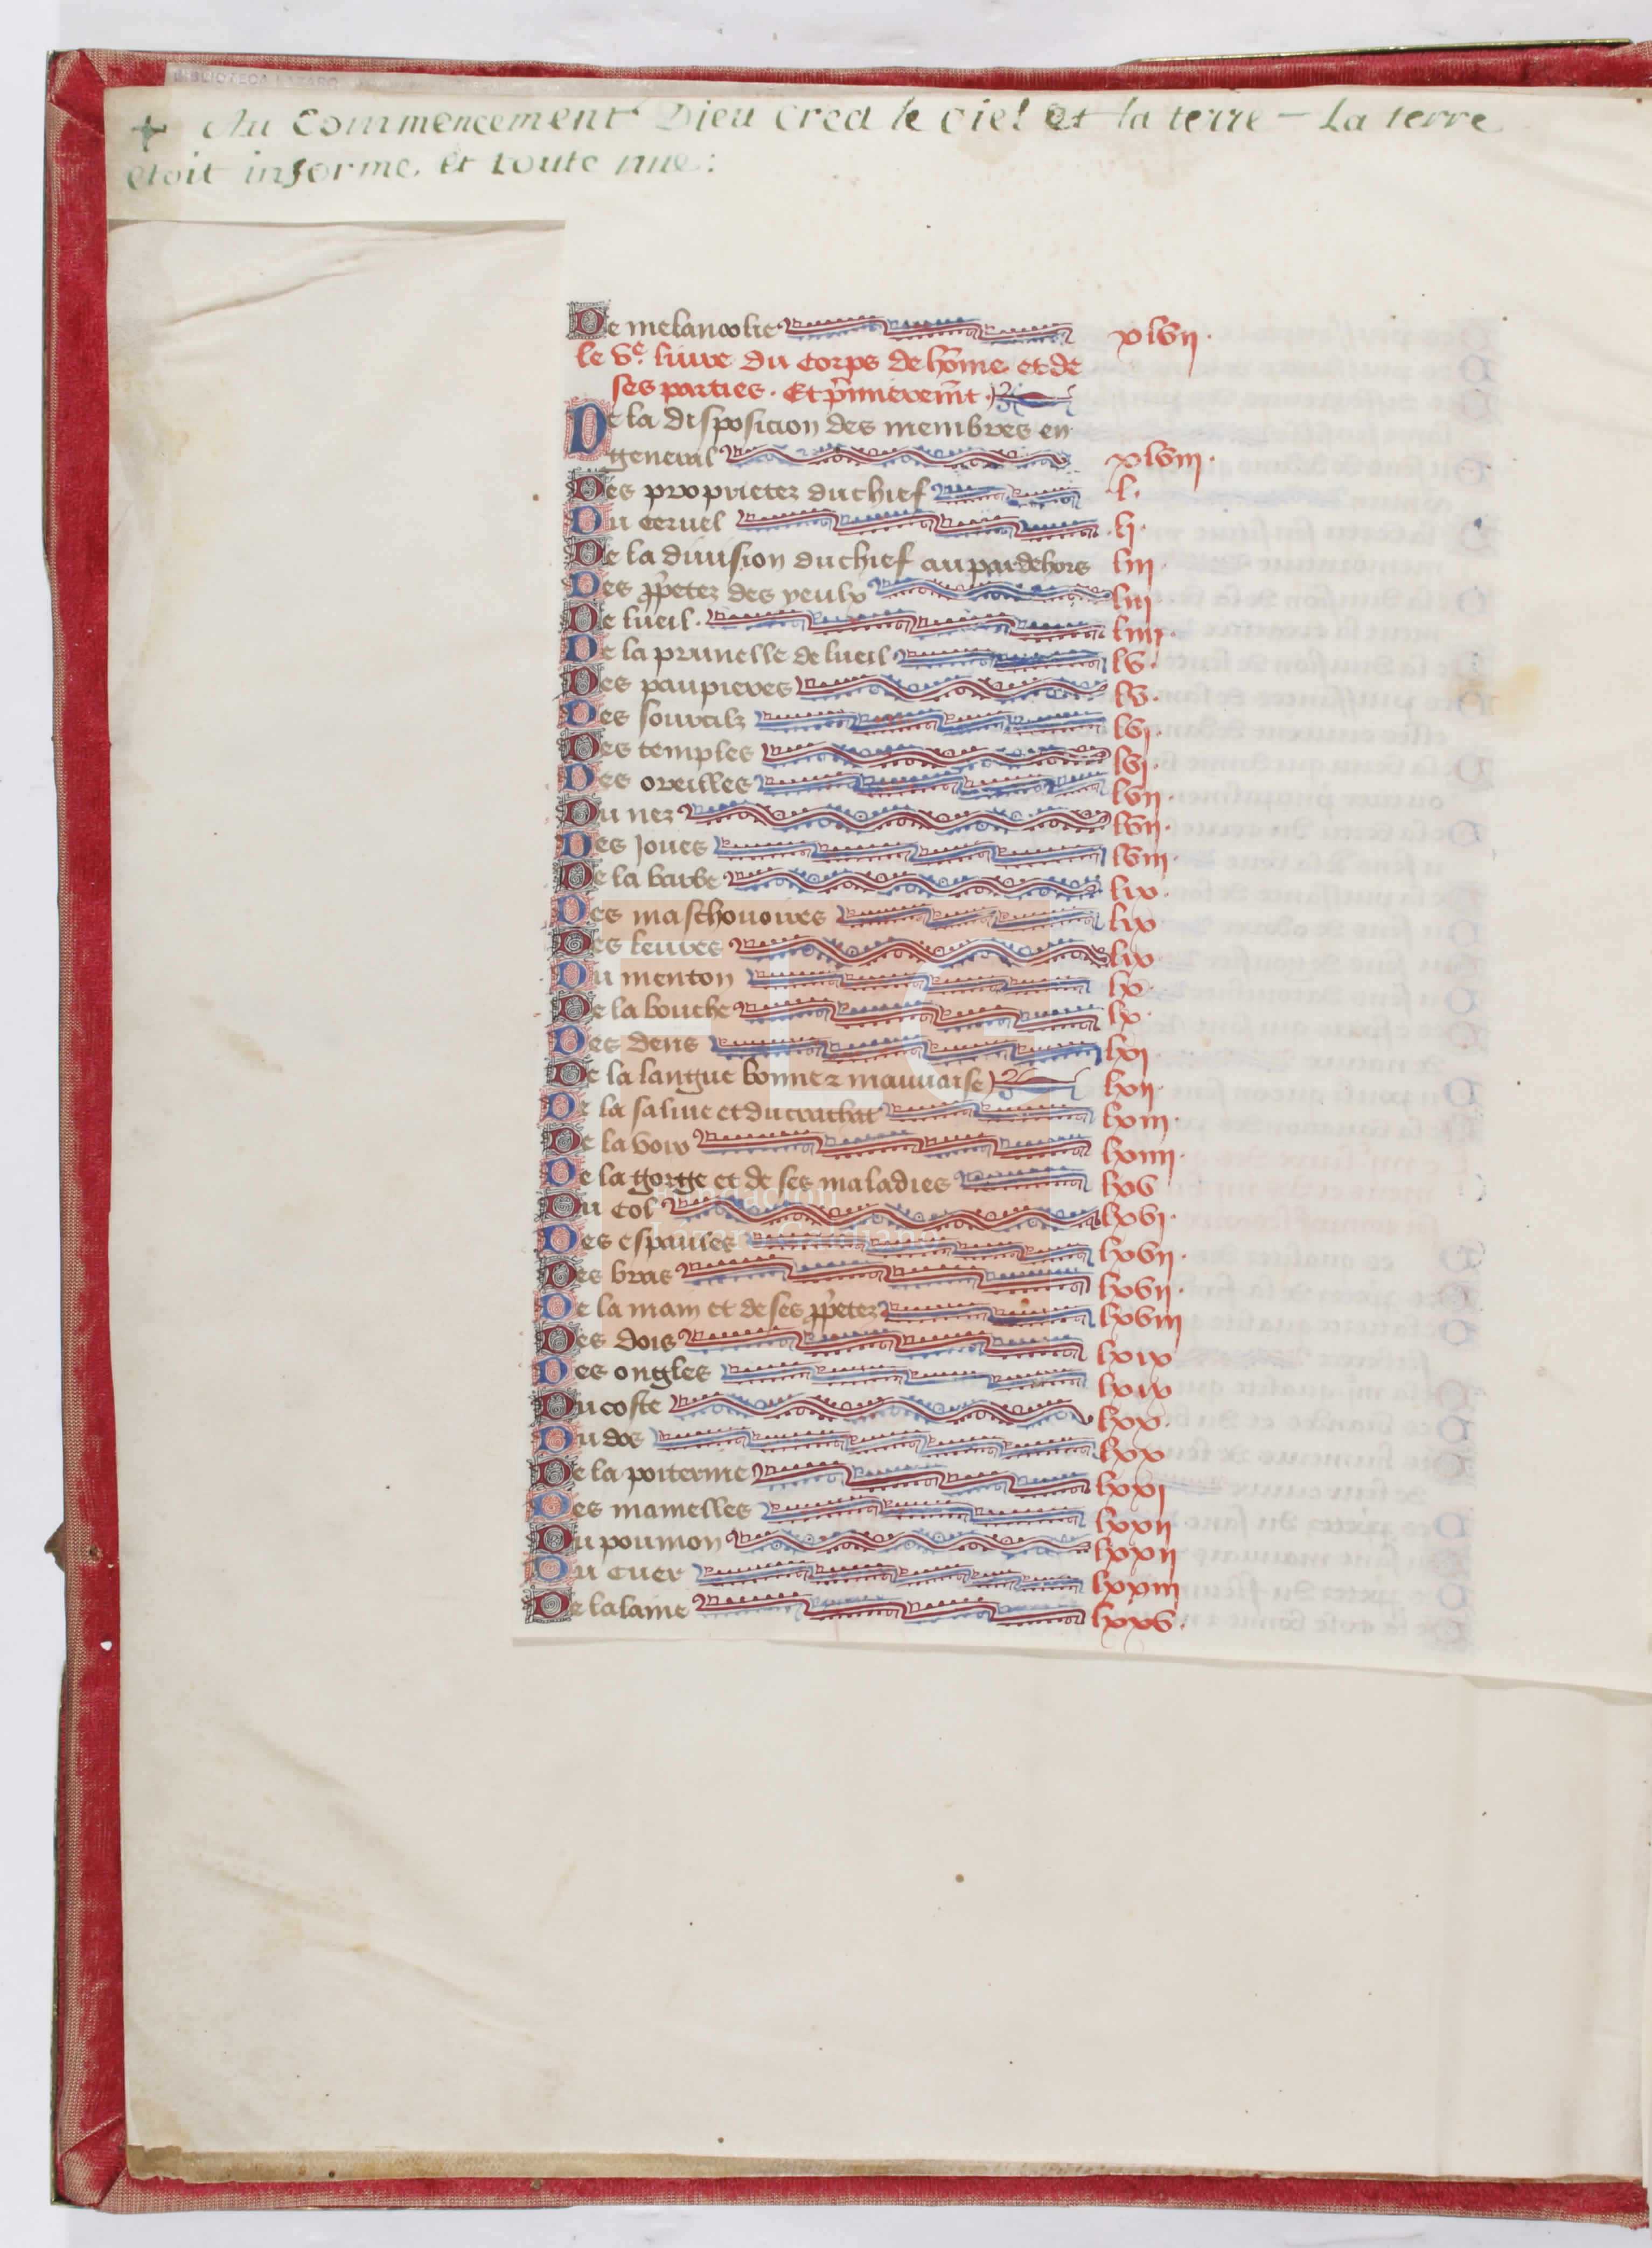 BIBLIOTECA LAZARO
+ Au Commencement Dieu crea le ciel et la terre – La terre
etoit informe, et toute nue :
De melancolie xlvii.
le ve. livre du corps de hõme et de
ses parties. Et p̃mieremẽt
De la disposicion des membres en
general xlviii.
Des proprietez du chief l.
Du cervel li.
De la division du chief au par dehors liii.
Des p̃petez des yeulx liii
De lueil. liiii.
De la prunelle de lueil lv.
Des paupieres lv.
Des sourcilz lvi.
Des temples lvi.
Des oreilles lvii.
Du nez lvii.
Des joues lviii.
De la barbe lix.
Des maschouoires lix
Des levres lix
Du menton lx.
De la bouche lx.
Des dens lxi
De la langue bonne ⁊ mauvaise lxii.
De la salive et du crachat lxiii.
De la voix lxiiii.
De la gorge et de ses maladies lxv
Du col lxvi.
Des espaules lxvii.
Des bras lxvii.
De la main et de ses p̃petez lxviii
Des dois lxix
Des ongles lxix
Du coste lxx.
Du dos lxx
De la poiterine lxxi
Des mamelles lxxii
Du poumon lxxii
Du cuer lxxiii
De lalaine lxxv.
Fundación
Lázaro Galdiano